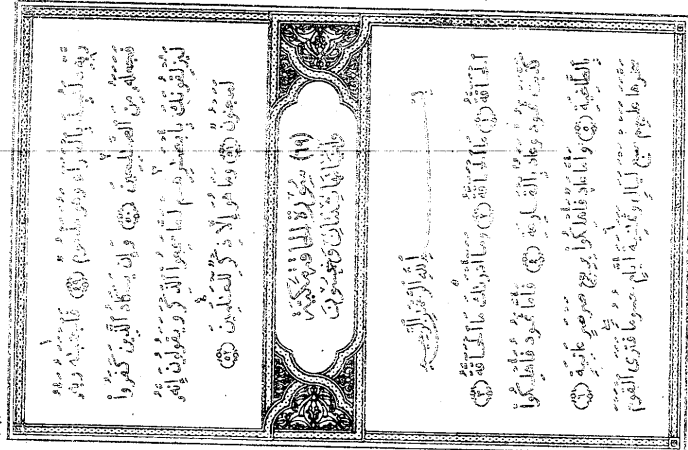 رَّبِّهِۦ لَنُبِذَ بِٱلْعَرَآءِ وَهُوَ مَذْمُومٌ ﴿٤٩﴾ فَٱجْتَبَٰهُ رَبُّهُۥ
فَجَعَلَهُۥ مِنَ ٱلصَّٰلِحِينَ ﴿٥٠﴾ وَإِن يَكَادُ ٱلَّذِينَ كَفَرُوا۟
لَيُزْلِقُونَكَ بِأَبْصَٰرِهِمْ لَمَّا سَمِعُوا۟ ٱلذِّكْرَ وَيَقُولُونَ إِنَّهُۥ
لَمَجْنُونٌ ﴿٥١﴾ وَمَا هُوَ إِلَّا ذِكْرٌ لِّلْعَٰلَمِينَ ﴿٥٢﴾
(٦٩) سُورَةُ الحَاقَّةِ مَكِّيَّة
وَآيَاتُهَا ثِنْتَانِ وَخَمْسُونَ
بِسْمِ ٱللَّهِ ٱلرَّحْمَٰنِ ٱلرَّحِيمِ
ٱلْحَآقَّةُ ﴿١﴾ مَا ٱلْحَآقَّةُ ﴿٢﴾ وَمَآ أَدْرَىٰكَ مَا ٱلْحَآقَّةُ ﴿٣﴾
كَذَّبَتْ ثَمُودُ وَعَادٌۢ بِٱلْقَارِعَةِ ﴿٤﴾ فَأَمَّا ثَمُودُ فَأُهْلِكُوا۟
بِٱلطَّاغِيَةِ ﴿٥﴾ وَأَمَّا عَادٌ فَأُهْلِكُوا۟ بِرِيحٍ صَرْصَرٍ عَاتِيَةٍ ﴿٦﴾
سَخَّرَهَا عَلَيْهِمْ سَبْعَ لَيَالٍ وَثَمَٰنِيَةَ أَيَّامٍ حُسُومًا فَتَرَى ٱلْقَوْمَ